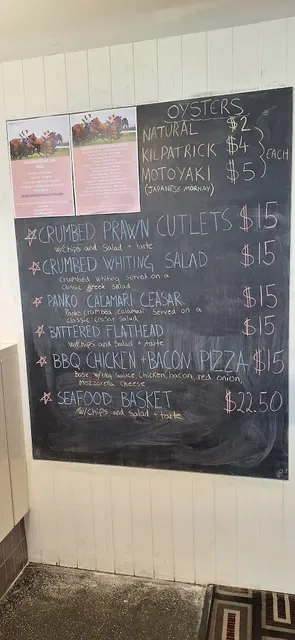 OYSTERS
NATURAL $2
KILPATRICK $4 EACH
MOTOYAKI $5
(JAPANESE MORNAY)
CRUMBED PRAWN CUTLETS $15
w/Chips and Salad + tarte
CRUMBED WHITING SALAD $15
Crumbed whiting served on a
Classic Greek Salad
PANKO CALAMARI CEASAR $15
Panko Crumbed Calamari Served on a
classic Cesar Salad
BATTERED FLATHEAD $15
w/Chips and Salad + tarte
BBQ CHICKEN + BACON PIZZA $15
Base w/bbq sauce, Chicken, bacon, red onion,
Mozzarella cheese
SEAFOOD BASKET $22.50
w/Chips and Salad + tarte